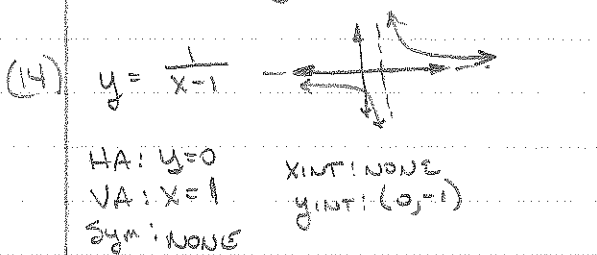 (14) y = 1/(x-1)
HA: y=0
VA: x=1
Sym: NONE
XINT: NONE
yINT: (0,-1)